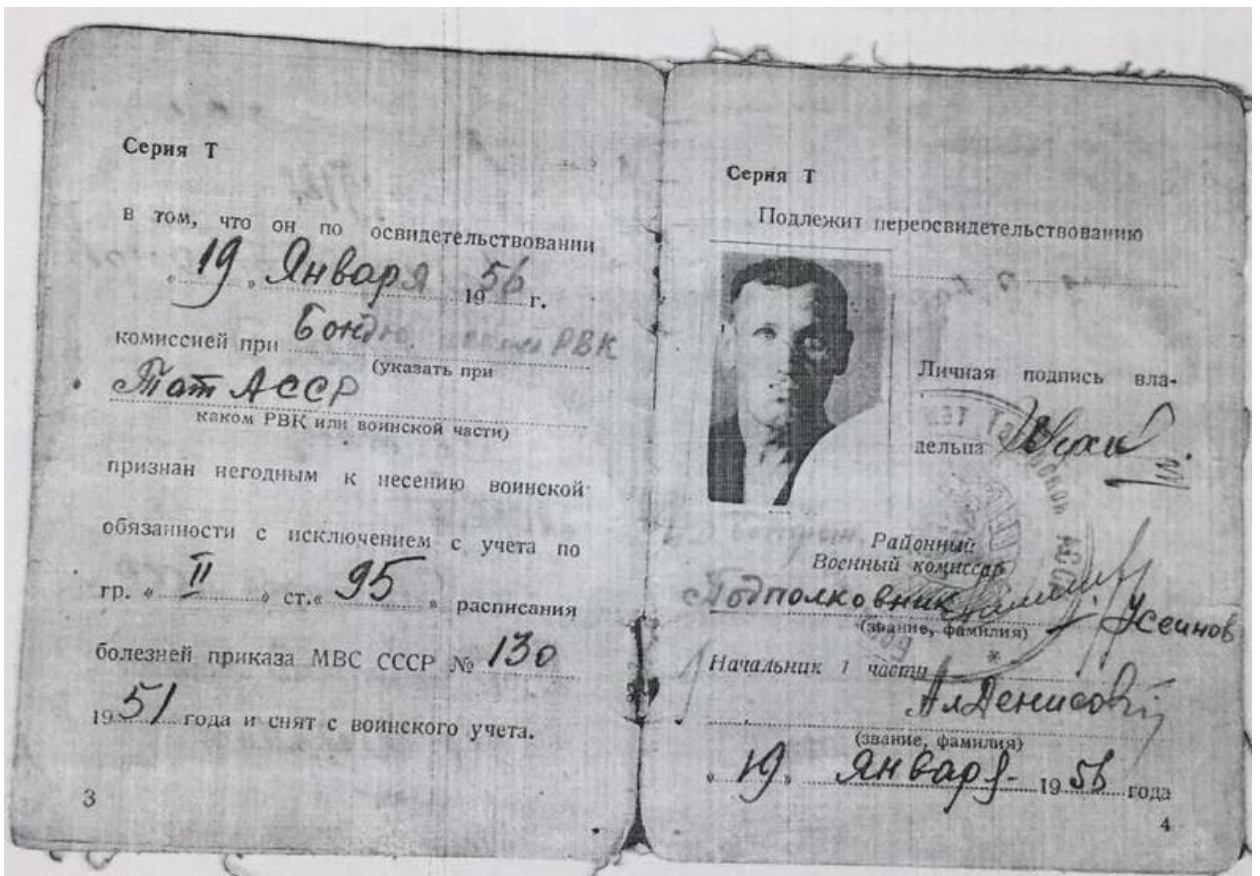 Серия Т
в том, что он по освидетельствовании
« 19 » Января 1956 г.
комиссией при РВК
(указать при
Тат АССР
каком РВК или воинской части)
признан негодным к несению воинской
обязанности с исключением с учета по
гр. « II » ст. « 95 » расписания
болезней приказа МВС СССР № 130
1951 года и снят с воинского учета.
3
Серия Т
Подлежит переосвидетельствованию
Личная подпись вла-
дельца
Районный
Военный комиссар
Подполковник Усеинов
(звание, фамилия)
Начальник 1 части
(звание, фамилия)
« 19 » Января 1956 года
4